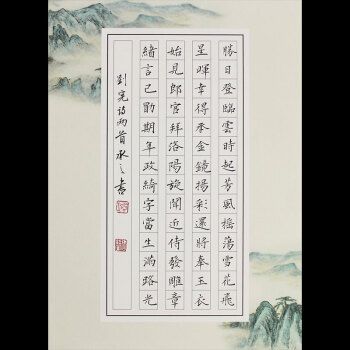 勝日登臨雲時起芳風搖蕩雪花飛
呈暉幸得承金鏡揚彩還將奉玉衣
始見郎官拜洛陽旋聞近侍發雕章
緒言已勖期年政綺字當生滿路光
劉憲詩兩首 之書